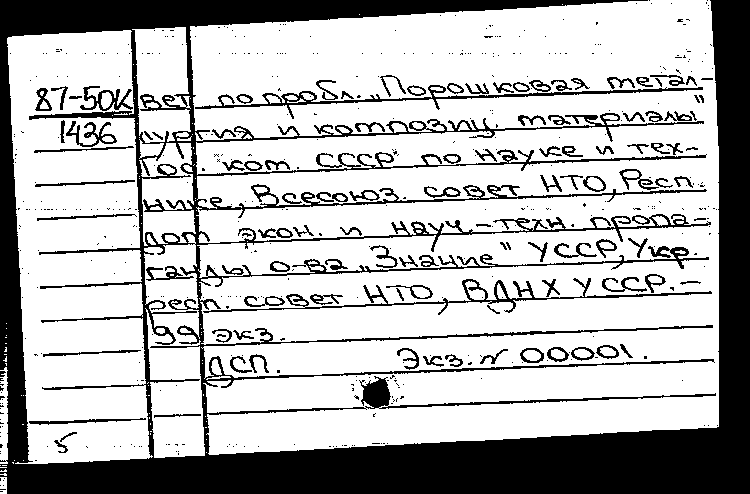 87-50К вет по пробл. „Порошковая метал-
1436 лургия и композиц. материалы"
Гос. ком. СССР по науке и тех-
нике, Всесоюз. совет НТО, Респ.
дом экон. и науч.-техн. пропа-
ганды о-ва „Знание" УССР, Укр.
респ. совет НТО, ВДНХ УССР.-
99 экз.
ДСП. Экз. № 00001.
5